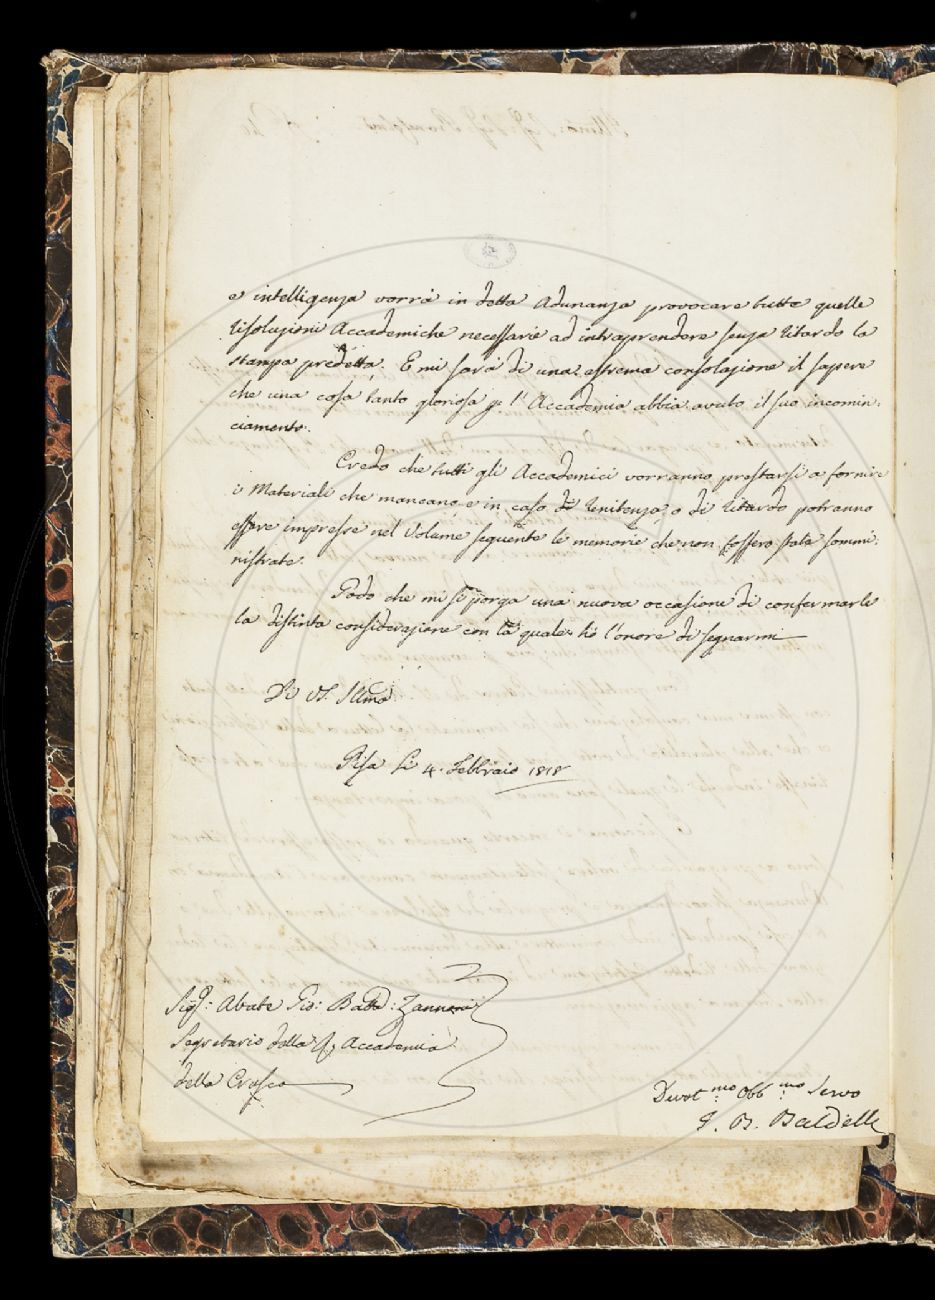 e intelligenza vorrà in detta Adunanza provocare tutte quelle
risoluzioni Accademiche necessarie ad intraprendere senza ritardo la
stampa predetta. E mi sarà di una estrema consolazione il sapere
che una cosa tanto gloriosa p l'Accademia abbia avuto il suo incomin:
ciamento.
Credo che tutti gli Accademici vorranno prestarsi a fornire
i Materiali che mancano e in caso di renitenza, o di ritardo potranno
essere impresse nel Volume seguente le memorie che non fossero state sommi:
nistrate.
Godo che mi si porga una nuova occasione di confermarle
la distinta considerazione con la quale ho l'onore di segnarmi
Di VS. Illma
Pisa li 4. Febbraio 1818
Sigr: Abate Gio: Batta: Zannoni
Segretario della Accademia
della Crusca
Devotmo Obbmo Servo
G. B. Baldelli